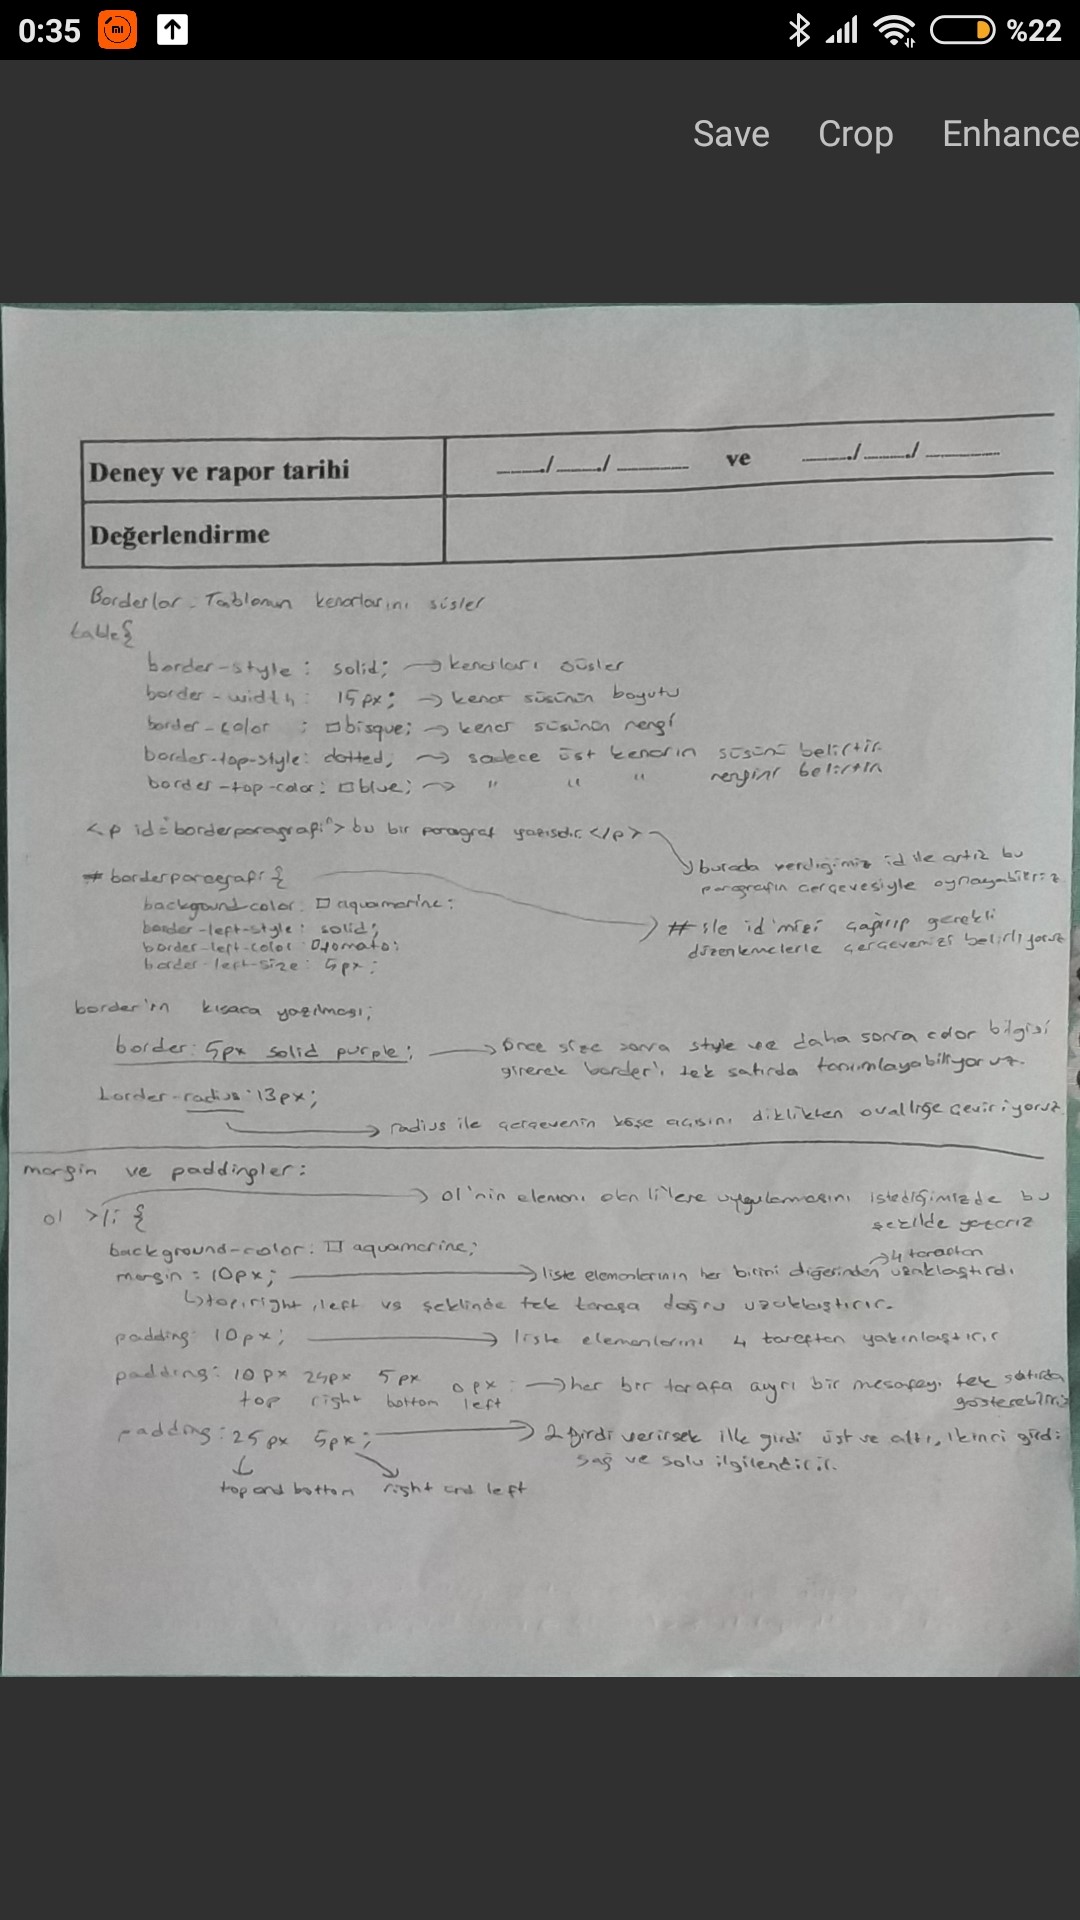 0:35 %22
Save Crop Enhance
Deney ve rapor tarihi ......../......../............ ve ......../......../............
Değerlendirme
Borderlar. Tablonun kenarlarını süsler
table{
border-style: solid; → kenarları süsler
border-width: 15px; → kenar süsünün boyutu
border-color: □bisque; → kenar süsünün rengi
border-top-style: dotted; → sadece üst kenarın süsünü belirtir
border-top-color: □blue; → " " " rengini belirtir
<p id="borderparagrafi"> bu bir paragraf yazısıdır.</p>
burada verdiğimiz id ile artık bu
paragrafın çerçevesiyle oynayabiliriz
#borderparagrafi {
background-color: □ aquamarine;
border-left-style: solid;
border-left-color: □tomato;
border-left-size: 5px;
# ile id'mizi çağırıp gerekli
düzenlemelerle çerçevemizi belirliyoruz
border'ın kısaca yazılması;
border: 5px solid purple; → Önce size sonra style ve daha sonra color bilgisi
girerek border'ı tek satırda tanımlayabiliyoruz.
border-radius: 13px;
→ radius ile çerçevenin köşe açısını diklikten ovalliğe çeviriyoruz
margin ve paddingler:
→ ol'nin elemanı olan li'lere uygulanmasını istediğimizde bu
şekilde yazarız
ol >li {
background-color: □ aquamarine;
→ 4 taraftan
margin: 10px; → liste elemanlarının her birini diğerinden uzaklaştırdı.
↳ top, right, left vs şeklinde tek tarafa doğru uzaklaştırır.
padding: 10px; → liste elemanlarını 4 taraftan yakınlaştırır
padding: 10px 25px 5px 0px; → her bir tarafa ayrı bir mesafeyi tek satırda
top right bottom left gösterebiliriz
padding: 25px 5px; → 2 girdi verirsek ilk girdi üst ve altı, ikinci girdi
sağ ve solu ilgilendirir.
top and bottom right and left